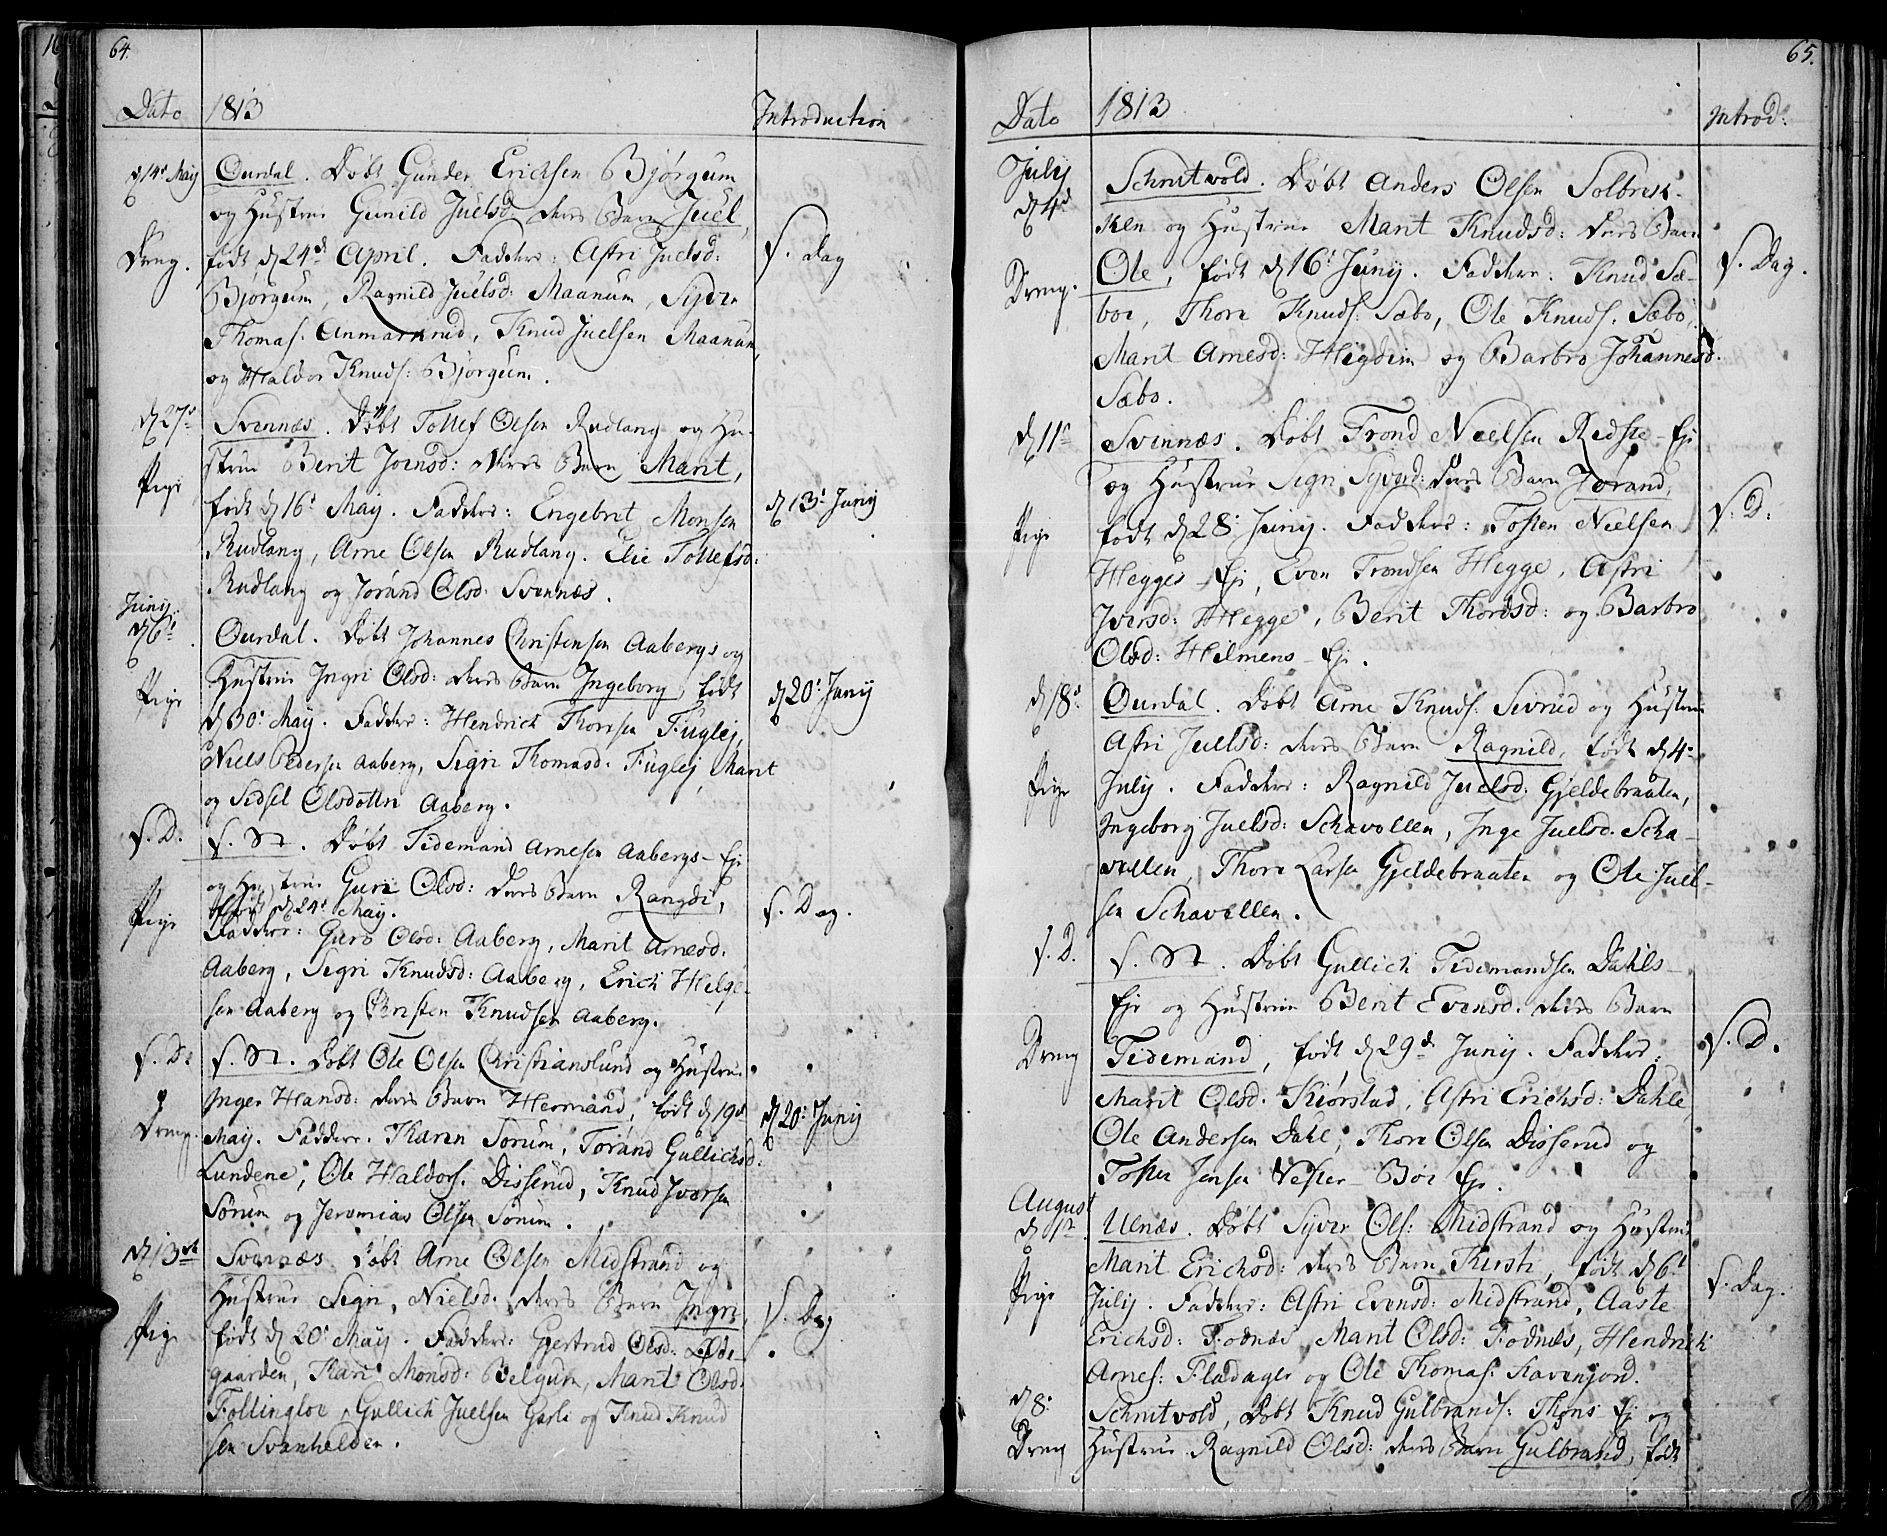 64.
Dato 1813 Introduction
d 14d May Ourdal. Døbt Gunder Erichsen Bjørgum
og Hustrue Gunild Juelsd: deres Barn Juel,
Dreng. født d 24d April. Faddere: Astri Juelsd: s. Dag
Bjørgum, Ragnild Juelsd: Maanum, Syver
Thomas. Anmarkrud, Knud Juelsen Maanum,
og Haldor Knuds: Bjørgum.
d 27d Svennæs. Døbt Tollef Olsen Rudlang og Hu-
strue Berit Joensd: deres Barn Marit,
Pige født d 16d May. Faddere: Engebret Monsen d 13d Junij
Rudlang, Arne Olsen Rudlang. Elie Tollefsd:
Rudlang og Jørand Olsd. Svennæs.
Junij
d 6d Ourdal. Døbt Johannes Christensen Aabergs og
Hustrue Ingri Olsd: deres Barn Ingeborg, født
Pige d 30d May. Faddere: Hendrich Thoresen Fuglej, d 20d Junij
Niels Pedersen Aaberg, Sigri Thomasd. Fuglej, Marit
og Sidsel Olsdøttre Aaberg.
s. D. s. St. Døbt Tidemand Arnesen Aabergs-Eje
og Hustrue Guri Olsd: deres Barn Rangdi,
født d 24d May.
Pige Faddere: Guro Olsd: Aaberg, Marit Arnesd. s. Dag.
Aaberg, Sigri Knudsd: Aaberg, Erich Helge-
sen Aaberg og Christen Knudsen Aaberg.
s. D. s. St. Døbt Ole Olsen Christianslund og Hustrue
Inger Hansd: deres Barn Hermand, født d 19d d 20d Junij
Dreng. May. Faddere. Karen Sørum, Tørand Gullichsd:
Lundene, Ole Haldors. Disserud, Knud Iversen
Sørum og Jeremias Olsen Sørum.
d 13de Svennæs. Døbt Arne Olsen Midstrand og
Hustrue Sigri Nielsd. deres Barn Ingri, s. Dag
Pige født d 20d May. Faddere: Gjertrud Olsd: Øde-
gaarden, Kari Monsd: Belgum, Marit Olsd.
Follingloe, Gullich Juelsen Garli og Knud Knud
sen Svanhelden.
65.
Dato 1813 Introd:
July
d 4d Schrutvold. Døbt Anders Olsen Solbrek-
ken og Hustrue Marit Knudsd: deres Barn
Dreng. Ole, født d 16d Junij. Faddere: Knud Sæ- s. Dag.
boe, Thore Knuds: Sæbo, Ole Knuds. Sæbo,
Marit Arnesd: Hegdein og Barbro Johannesd.
Sæbo.
d 11d Svennæs. Døbt Trond Nielsen Ridste-Eje
og Hustrue Sigri Syversd: deres Barn Jørand,
Pige født d 28d Junij. Faddere: Tosten Nielsen s. D.
Hegges-Eje, Even Trondsen Hegge, Astri
Iversd: Hegge, Berit Thordsd: og Barbro
Olsd: Hilmens-Eje.
d 18d Ourdal. Døbt Arne Knuds. Sivrud og Hustrue
Astri Juelsd: deres Barn Ragnild, født d 4d
Pige July. Faddere: Ragnild Juelsd. Gjeldebraaten,
Ingeborg Juelsd: Schavellen, Inge Juelsd. Scha-
vellen, Thore Larsen Gjeldebraaten og Ole Juel-
sen Schavellen.
s. D. s. St. Døbt Gullich Tidemandsen Dahls-
Eje og Hustrue Berit Evensd. deres Barn
Dreng Tidemand, født d 29d Junij. Faddere: s. D.
Marit Olsd. Kiørstad, Astri Erichsd: Dahle
Ole Andersen Dahl, Thore Olsen Disserud og
Tosten Jensen Vester-Bøe Eje.
August
d 1te Ulnæs. Døbt Syver Ols: Midstrand og Hustrue
Marit Erichsd: deres Barn Kirsti, født d 6d
Pige July. Faddere: Astri Evensd: Midstrand, Aaste s. Dag.
Erichsd: Fodnæs, Marit Olsd: Fodnæs, Hendrich
Arnes: Fladager og Ole Thomas: Stavenjord.
d 8d Schrutvold, Døbt Knud Gulbrands: Thøns-Eje og
Dreng Hustrue Ragnild Olsd: deres Barn Gulbrand, født